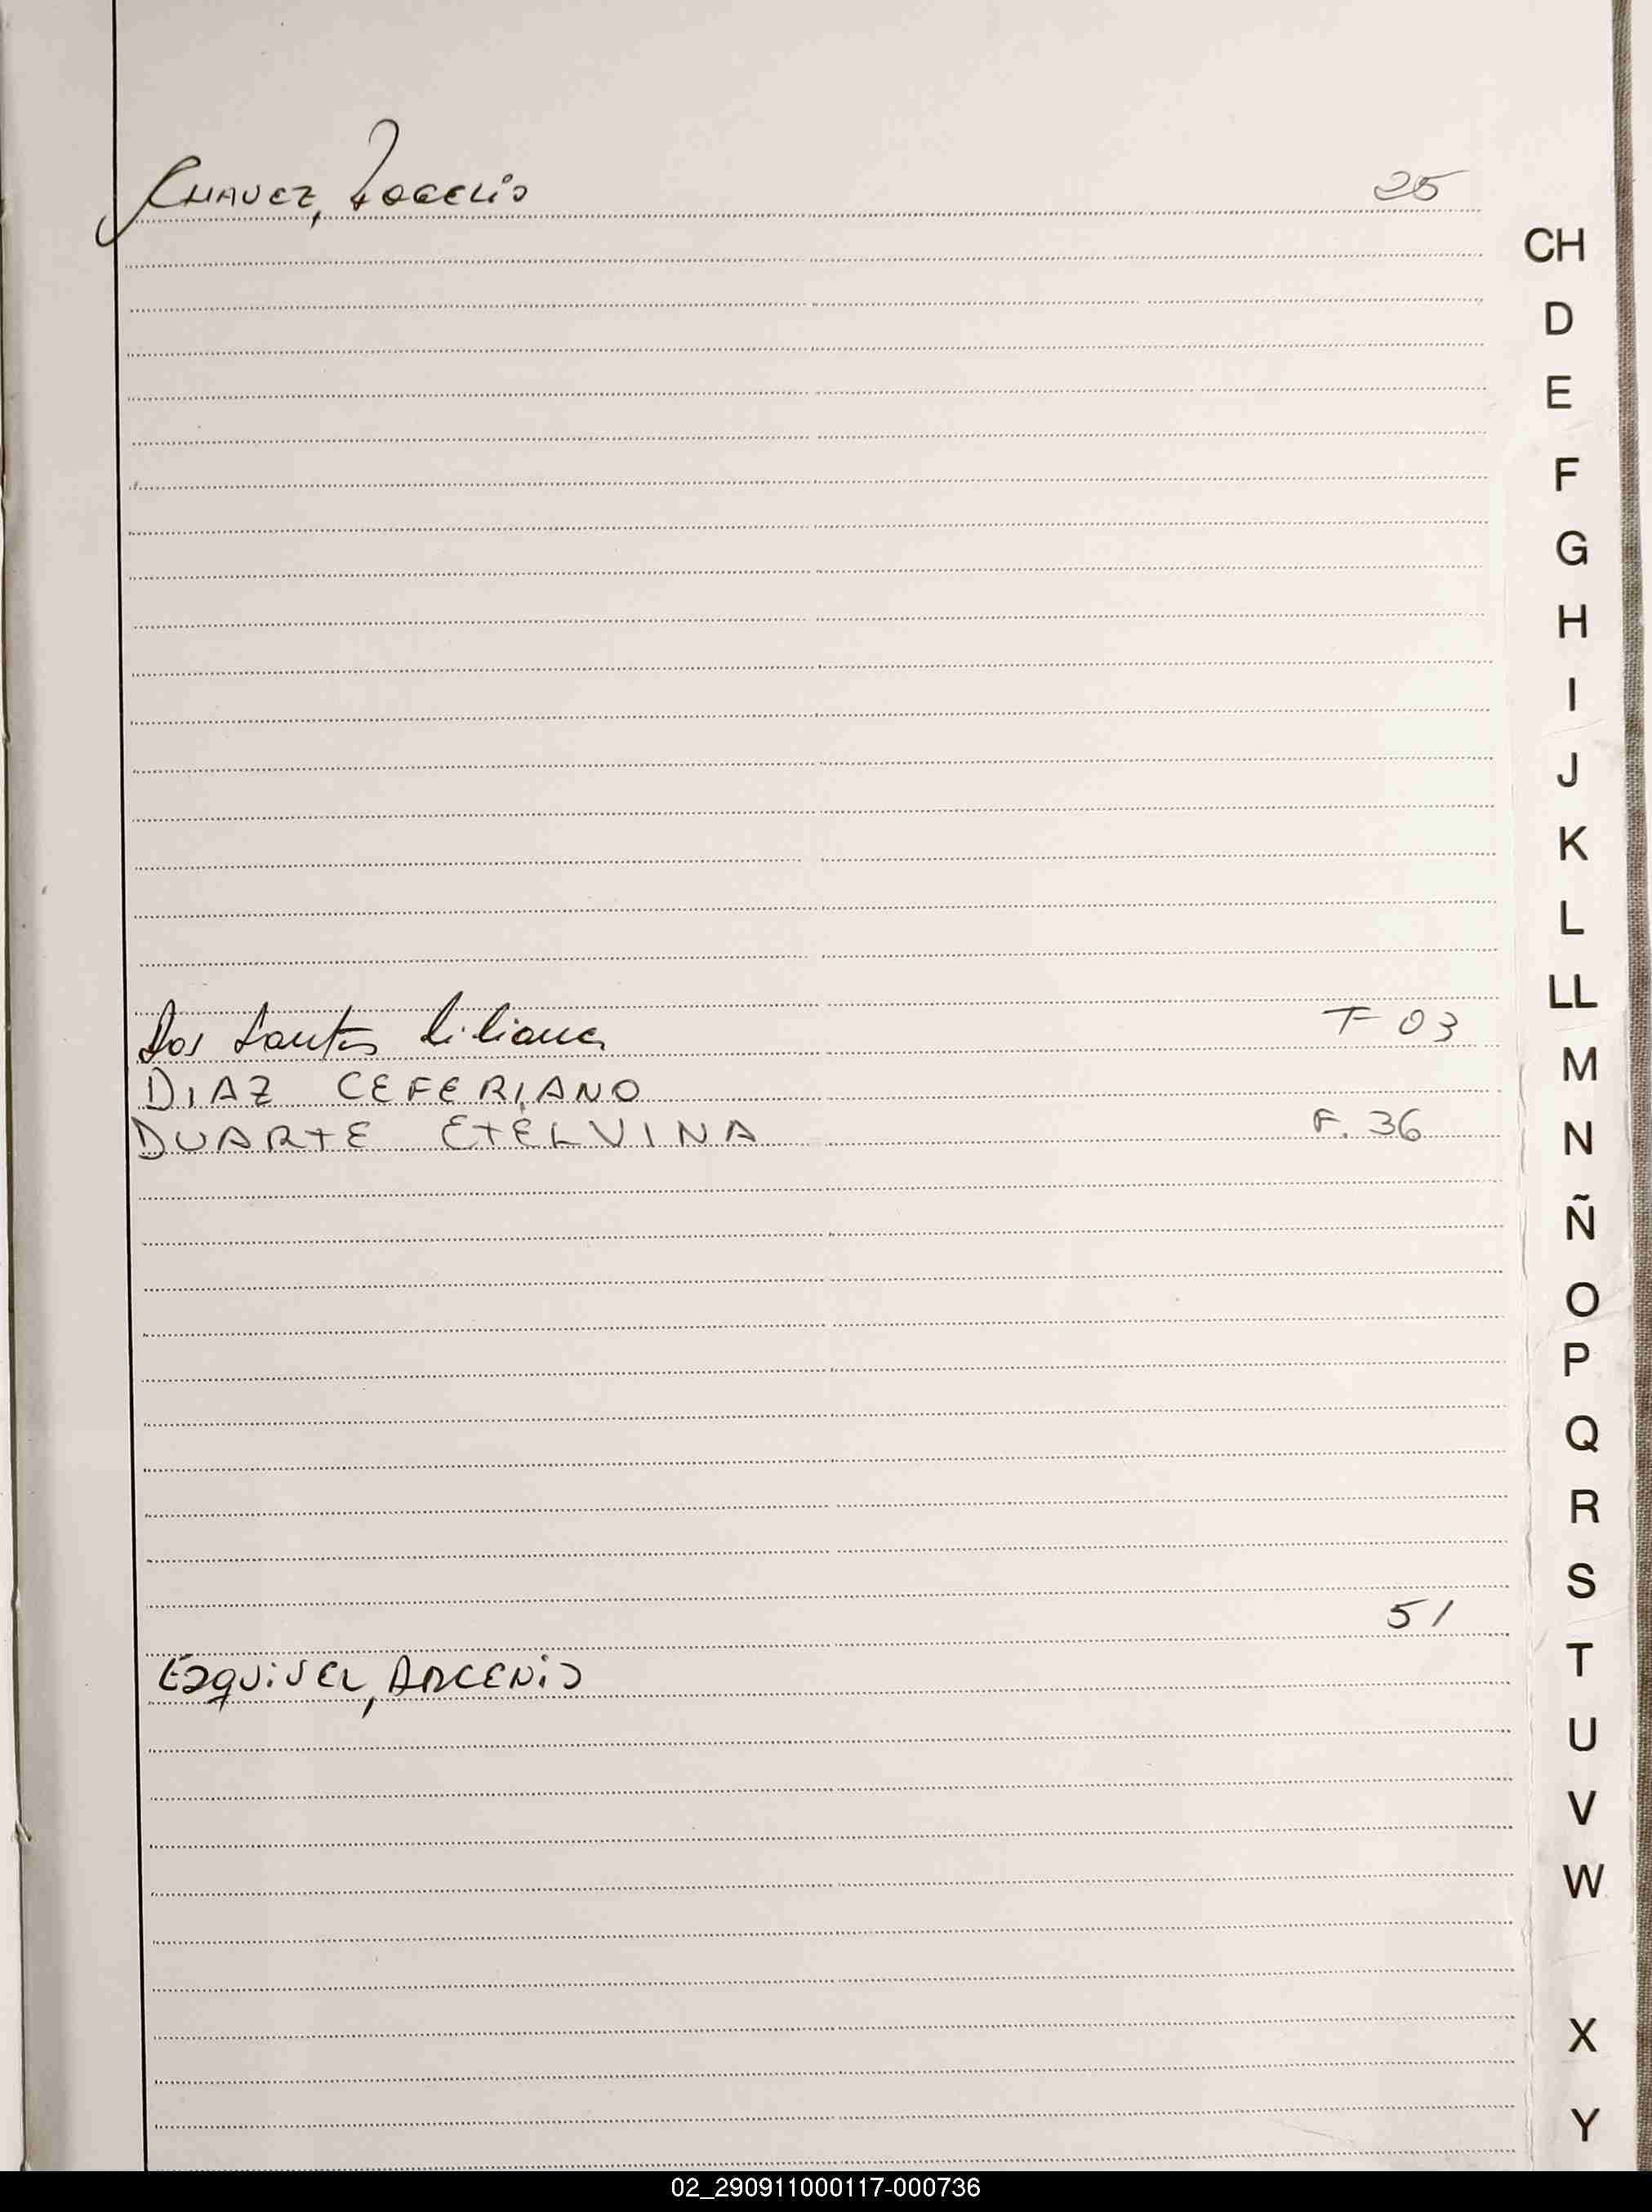 CHAVEZ, ROGELIO 25
CH
D
E
F
G
H
I
J
K
L
LL
Dos Santos Liliana F 03
M
DIAZ CEFERIANO
DUARTE ETELVINA F. 36
N
Ñ
O
P
Q
R
S
51
T
EZQUIVEL, ARCENIO
U
V
W
X
Y
02_290911000117-000736